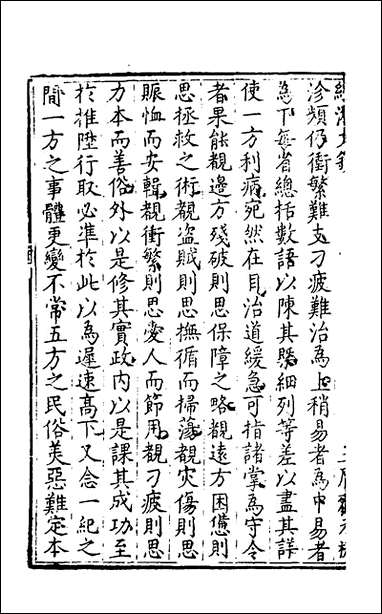 沴頻仍衝繁難支刁疲難治為上稍易者為中易者
為下每省總括數語以陳其槩細列等差以盡其詳
使一方利病宛然在目治道緩急可指諸掌為守令
者果能觀邊方殘破則思保障之略觀遠方困憊則
思拯救之術觀盜賊則思撫循而掃蕩觀灾傷則思
賑恤而安輯觀衝繁則思愛人而節用觀刁疲則思
力本而善俗外以是修其實政内以是課其成功至
於推陞行取必準於此以為遲速高下又念一紀之
間一方之事體更變不常五方之民俗美惡難定本